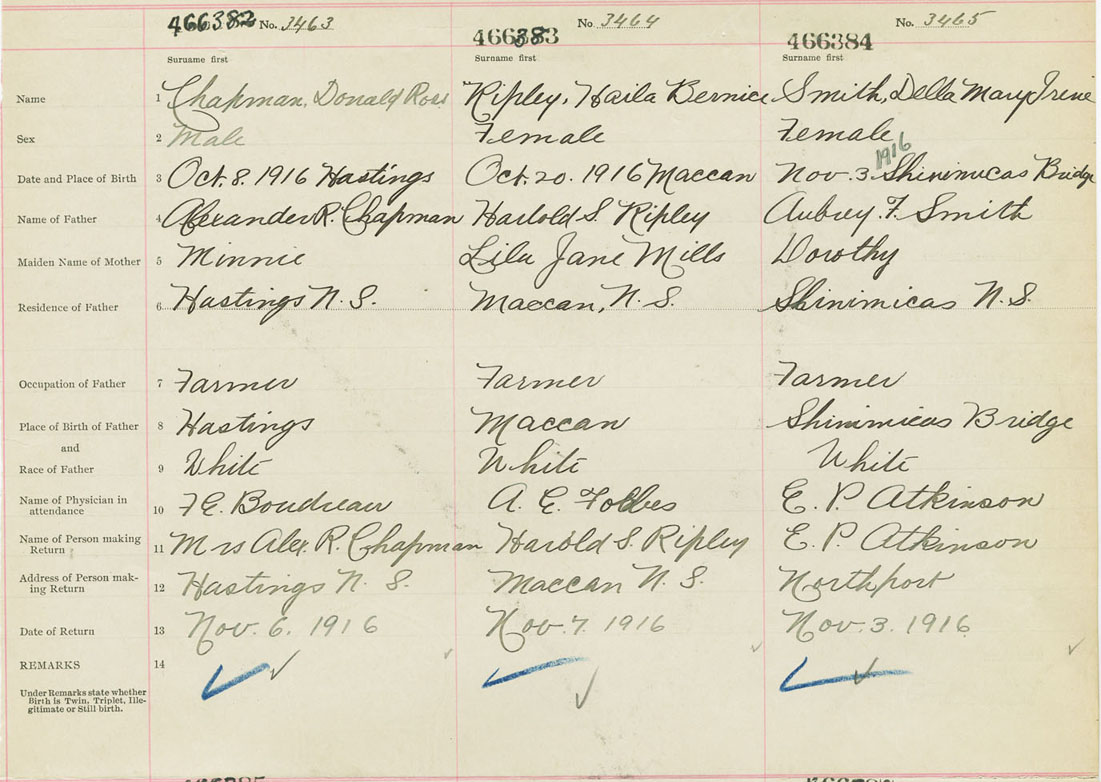 466382 No. 3463 No 3464 No. 3465
466383 466384
Surname first Surname first Surname first
Name 1 Chapman, Donald Ross Ripley, Haila Bernice Smith, Della Mary Irene
Sex 2 Male Female Female
Date and Place of Birth 3 Oct. 8. 1916 Hastings Oct. 20. 1916 Maccan Nov. 3. 1916 Shinimicas Bridge
Name of Father 4 Alexander R. Chapman Harlold S. Ripley Aubrey F. Smith
Maiden Name of Mother 5 Minnie Lila Jane Mills Dorothy
Residence of Father 6 Hastings N. S. Maccan, N. S. Shinimicas N. S.
Occupation of Father 7 Farmer Farmer Farmer
Place of Birth of Father 8 Hastings Maccan Shinimicas Bridge
and
Race of Father 9 White White White
Name of Physician in
attendance 10 F E. Boudreau A. E. Forbes E. P. Atkinson
Name of Person making
Return 11 Mrs Alex. R. Chapman Harold S. Ripley E. P. Atkinson
Address of Person mak-
ing Return 12 Hastings N. S. Maccan N. S. Northport
Date of Return 13 Nov. 6. 1916 Nov. 7. 1916 Nov. 3. 1916
REMARKS 14
Under Remarks state whether
Birth is Twin, Triplet, Ille-
gitimate or Still birth.